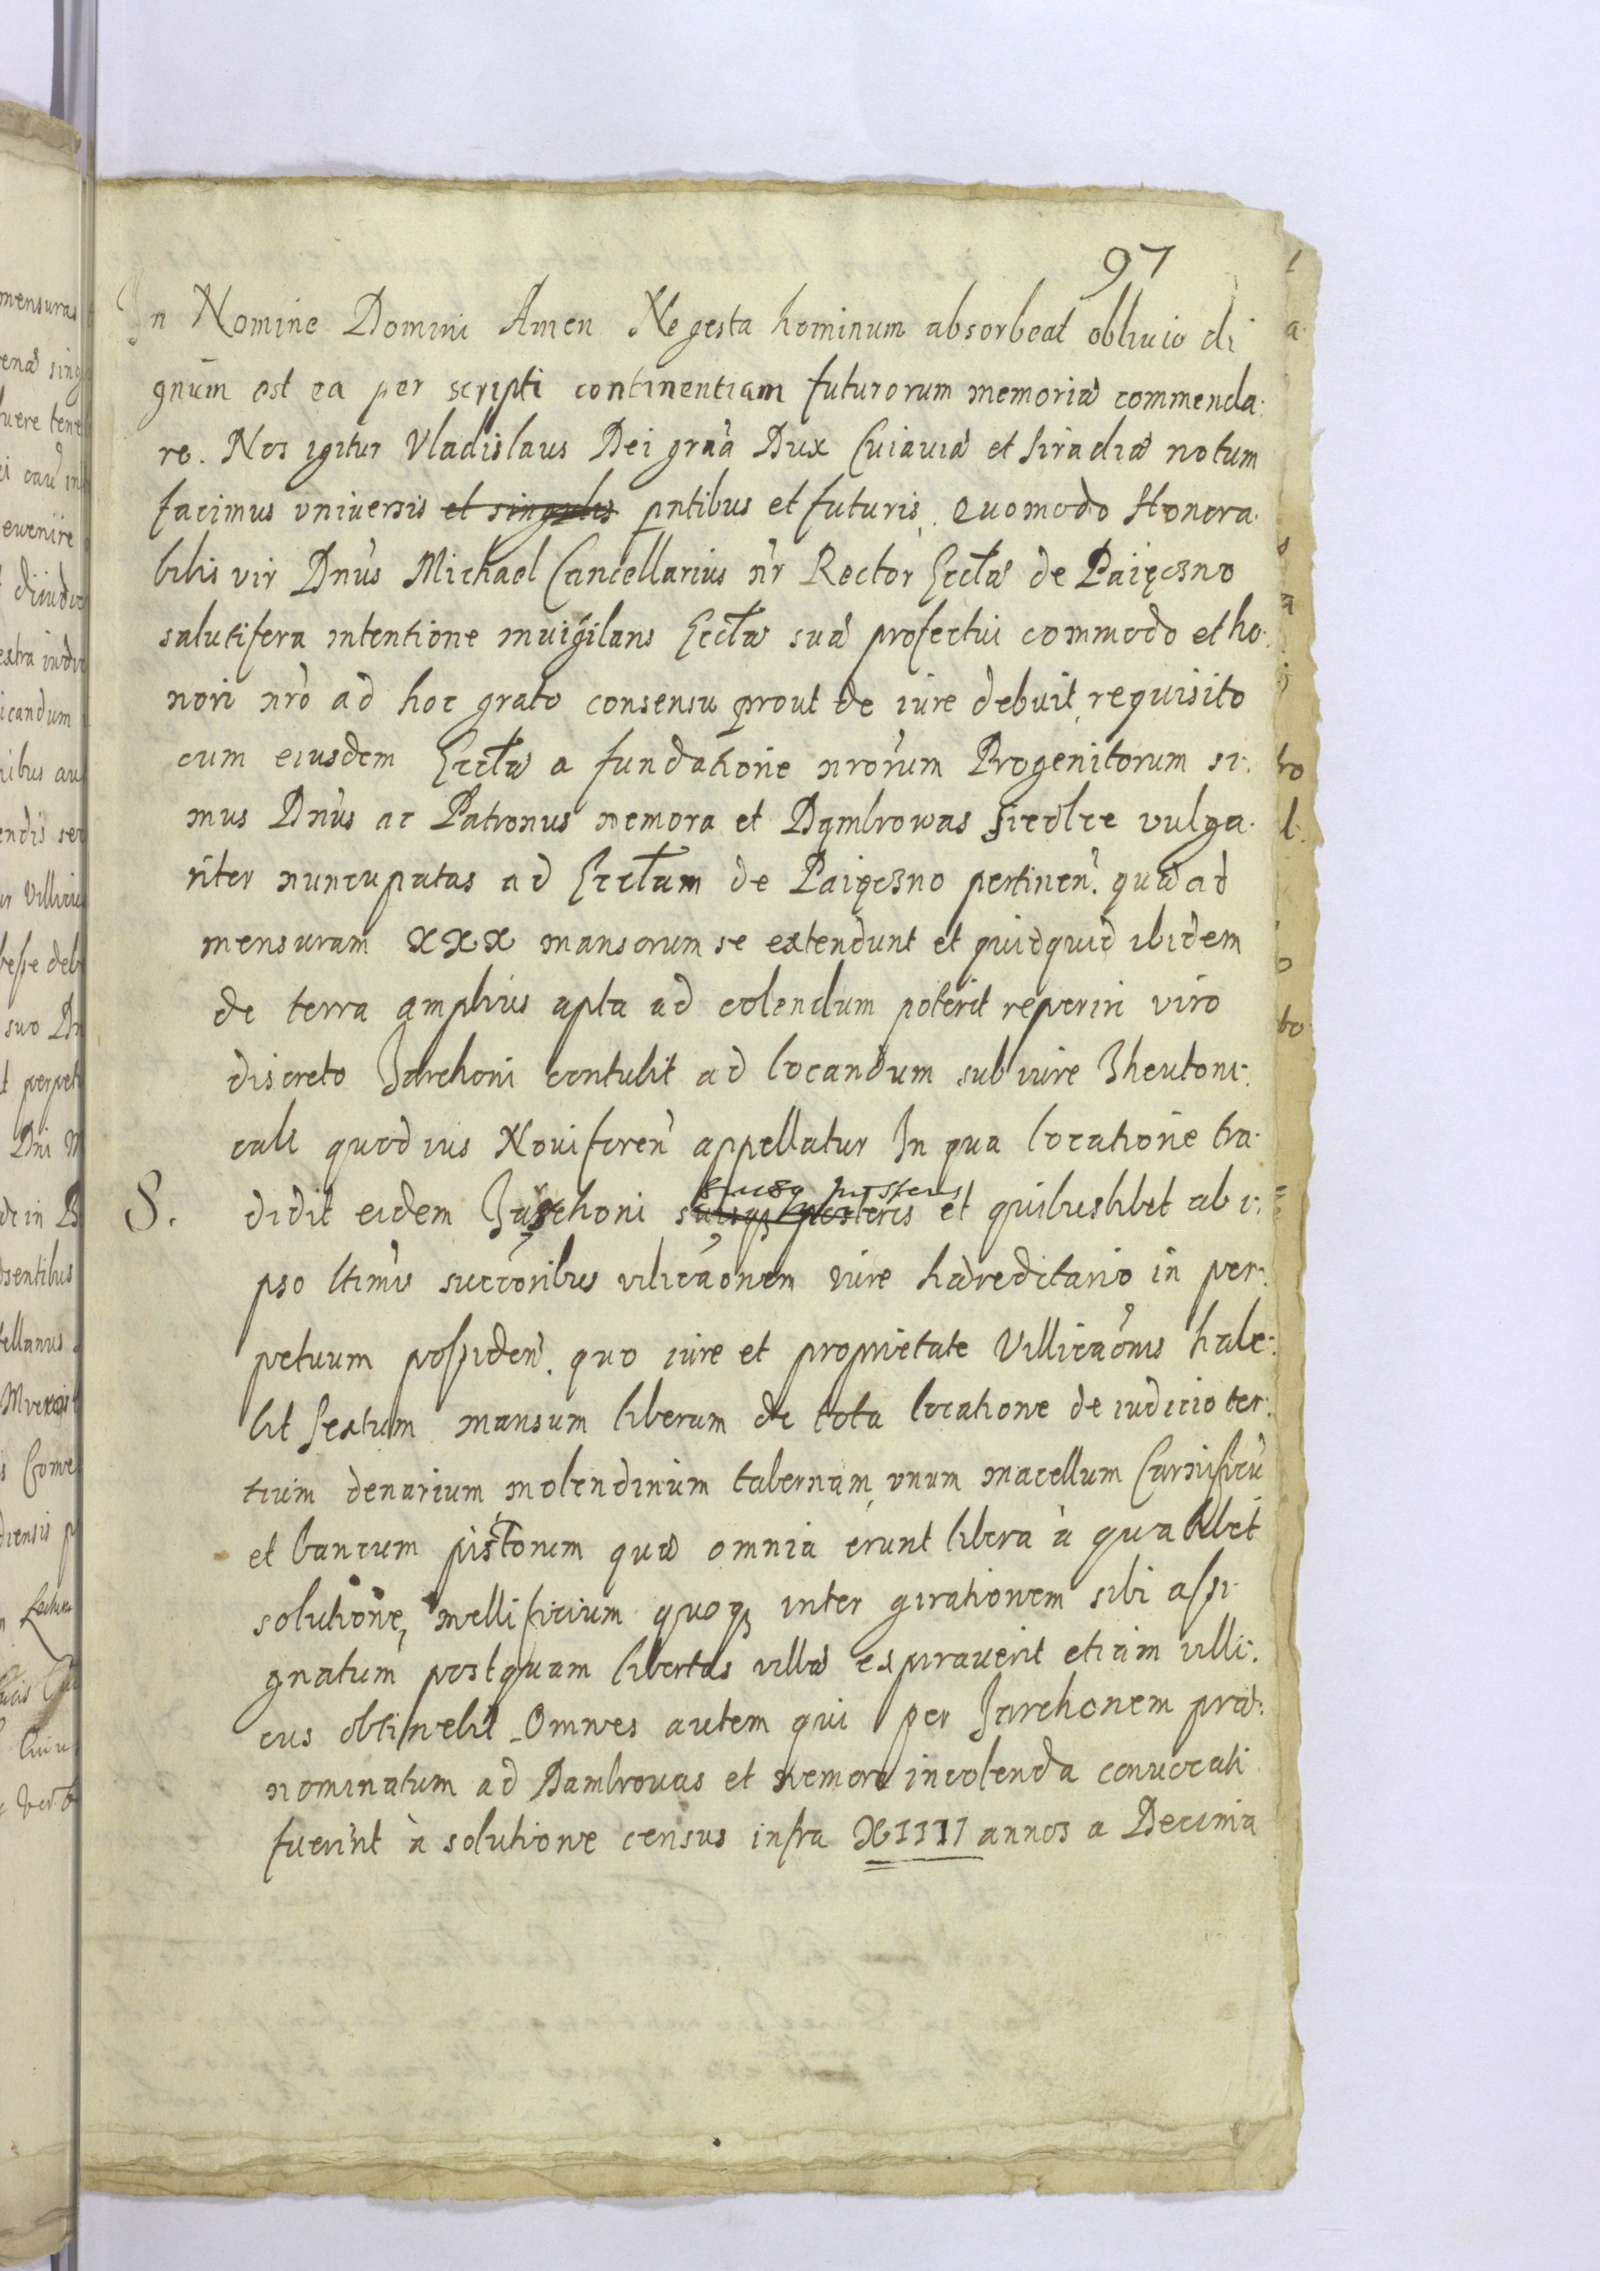 97
In Nomine Domini Amen Ne gesta hominum absorbeat obliuio di
gnum est ea per scripti continentiam futurorum memoriæ commenda:
re. Nos igitur Vladislaus Dei grãa Dux Cuiauiæ et Siradiæ notum
facimus vniuersis et singulis pntibus et futuris, Quomodo Honora:
bilis vir Dnus Michael Cancellarius nr Rector Eccłæ de Paięczno
salutifera intentione inuigilans Eccłæ suæ profectui commodo et ho:
nori nro ad hoc grato consensu prout de iure debuit, requisito
cum eiusdem Eccłæ a fundatione nrorum Progenitorum si:
mus Dnus ac Patronus nemora et Dąmbrowas Siedlce vulga:
riter nuncupatas ad Eccłam de Paięczno pertinen. quæ ad
mensuram XXX mansorum se extendunt et quidquid ibidem
de terra amplius apta ad colendum poterit reperiri viro
discreto Jarchoni contulit ad locandum sub iure Theutoni:
cali quod ius Nouiforen appellatur In qua locatione tra:
S. didit eidem Jaschoni suisq posteris et quibuslibet ab i:
pso ltimis succoribus vilicaonem iure hæreditario in per:
petuum possiden. quo iure et proprietate Villicaonis habe:
bit Sextum mansum liberum de tota locatione de iudicio ter:
tium denarium molendinum tabernam, vnum macellum Carnificũ
et bancum pistorum quæ omnia erunt libera à qualibet
solutione, mellificium quoq inter girationem sibi assi:
gnatum postquam libertas villæ expirauerit etiam villi:
cus obtinebit. Omnes autem qui per Jarchonem præ:
nominatum ad Dambrouas et nemora incolenda conuocati
fuerint à solutione census infra XIIII annos a Decima